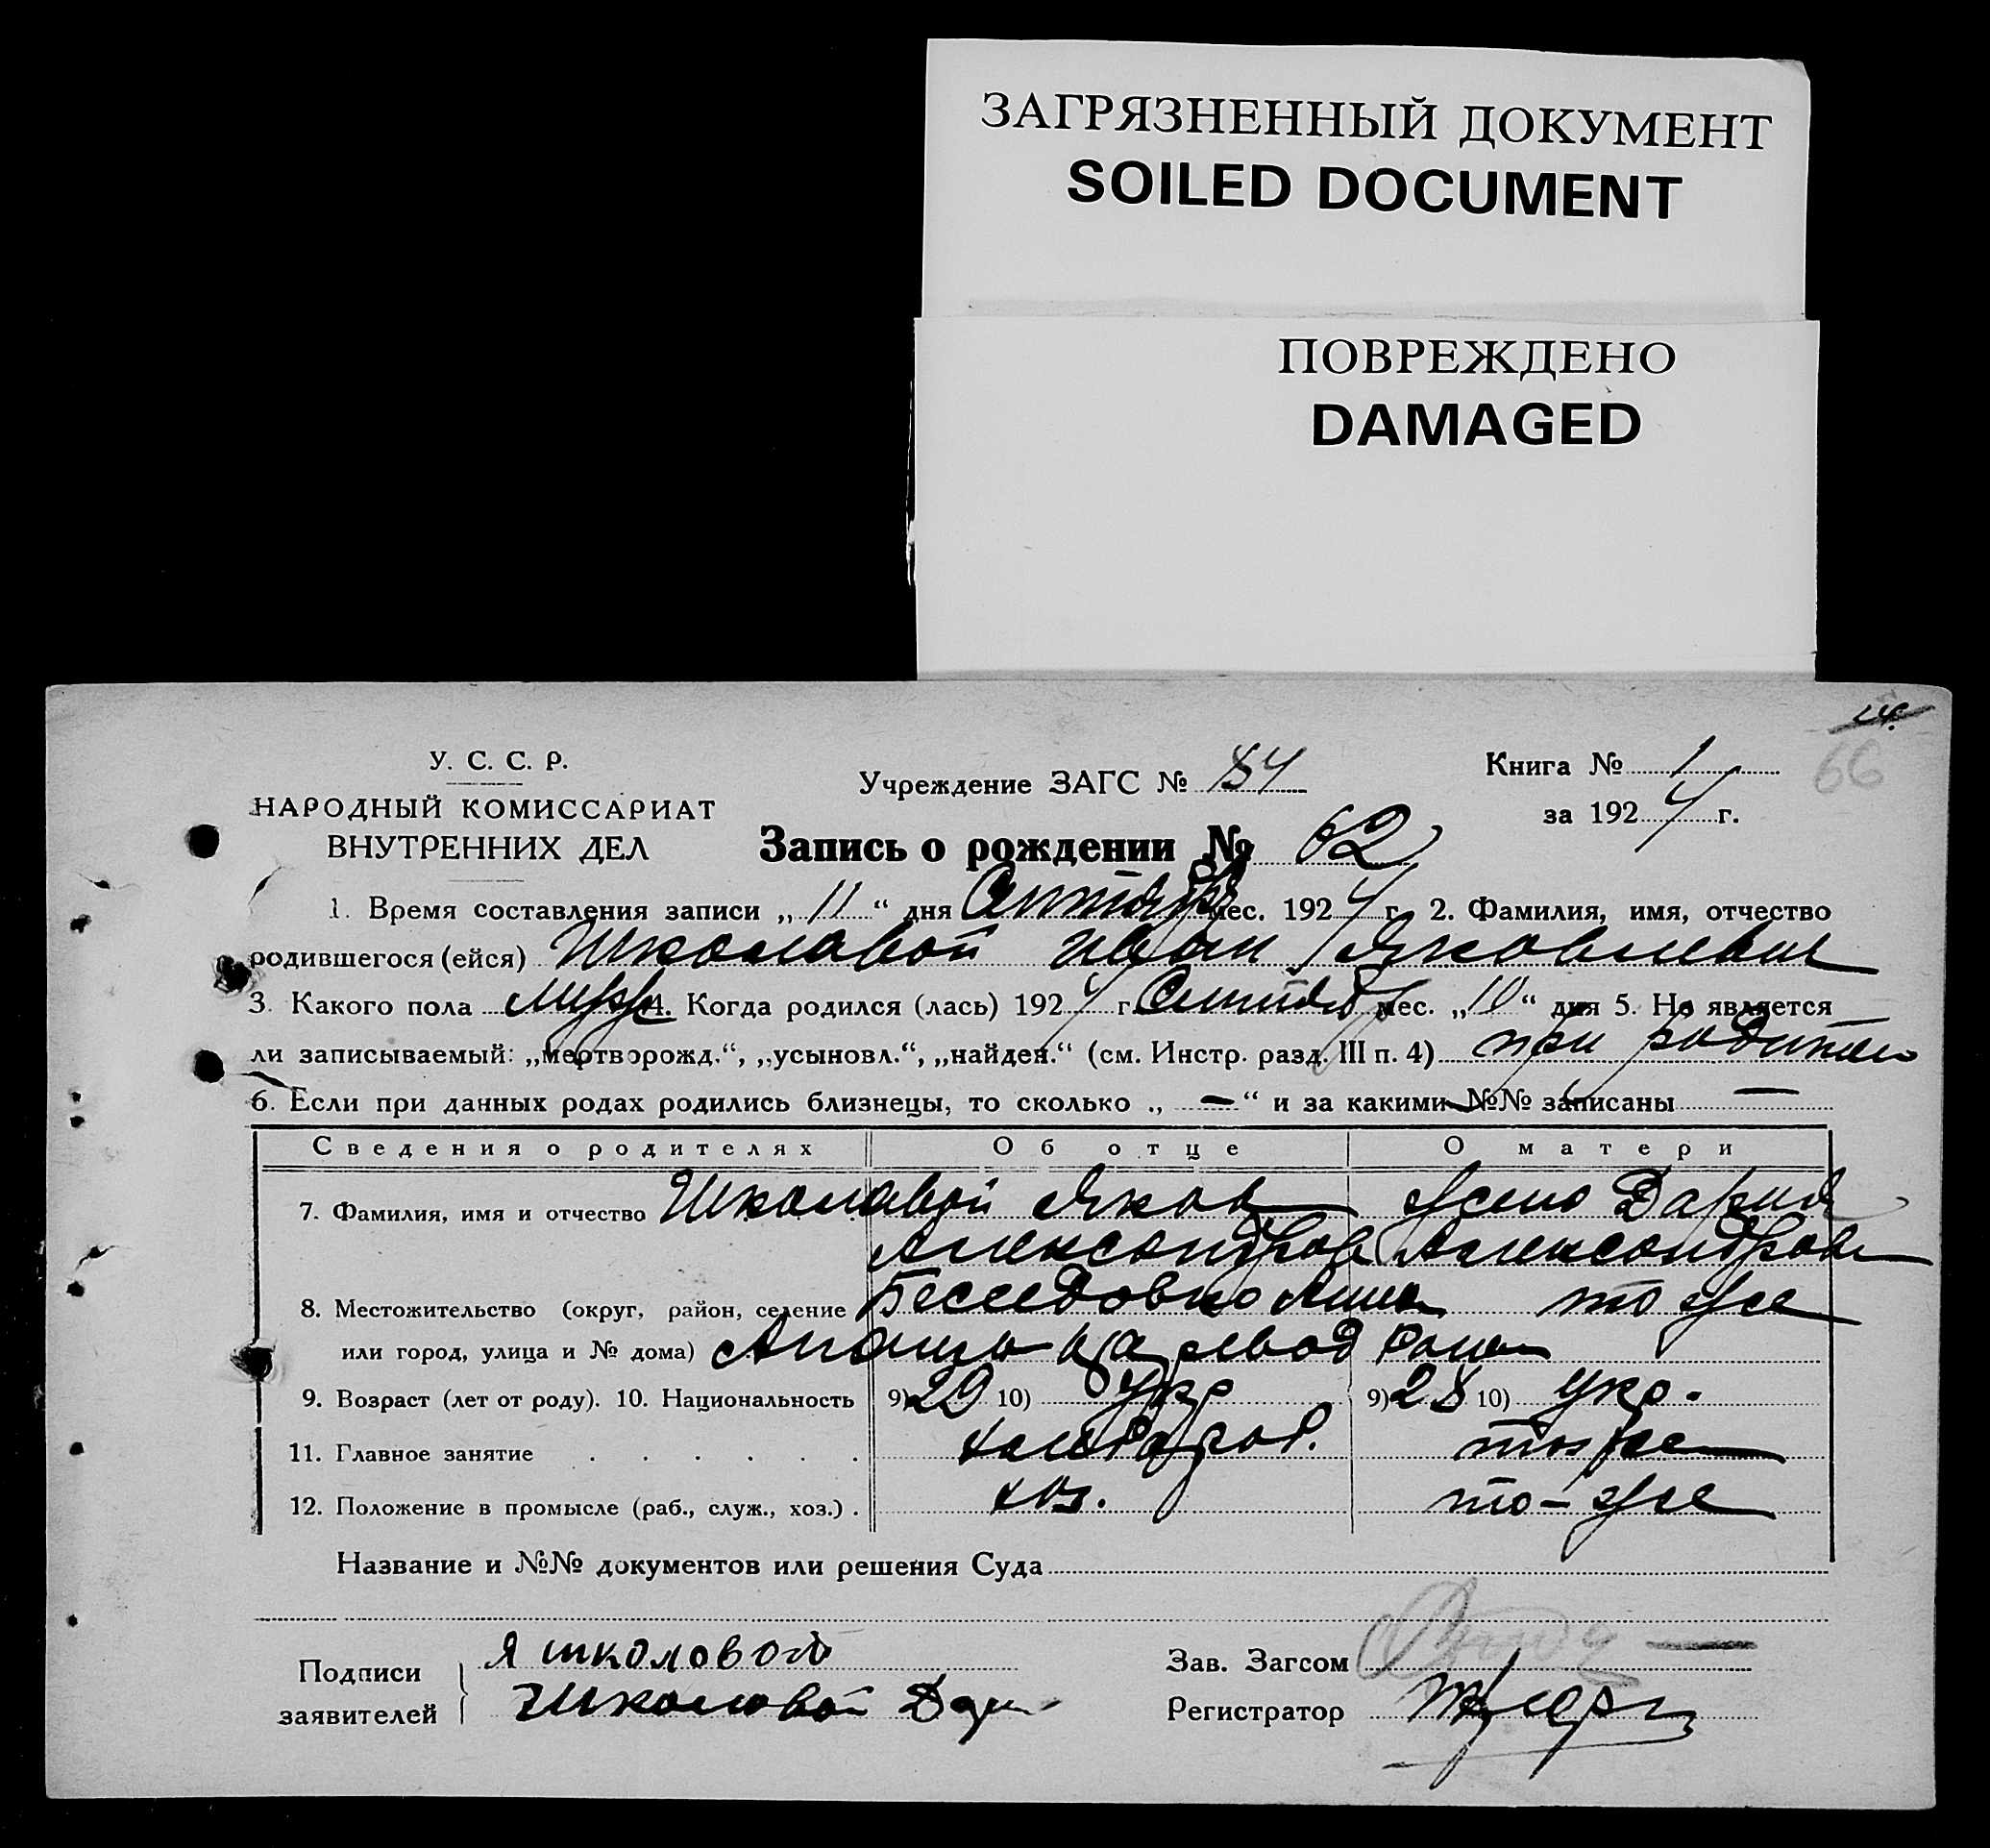 ЗАГРЯЗНЕННЫЙ ДОКУМЕНТ
SOILED DOCUMENT
ПОВРЕЖДЕНО
DAMAGED
66
У. С. С. Р.
НАРОДНЫЙ КОМИССАРИАТ
ВНУТРЕННИХ ДЕЛ
Учреждение ЗАГС № 84
Книга № 1
за 1924 г.
Запись о рождении № 62
1. Время составления записи „ 11 “ дня мес. 1924 г. 2. Фамилия, имя, отчество
родившегося (ейся) Школавой Иван Яковлевич
3. Какого пола муж 4. Когда родился (лась) 1924 г. мес. „ 10 “ дня 5. Не является
ли записываемый: „мертворожд.“, „усыновл.“, „найден.“ (см. Инстр. разд. III п. 4) при
6. Если при данных родах родились близнецы, то сколько „ — “ и за какими №№ записаны —
Сведения о родителях Об отце О матери
7. Фамилия, имя и отчество Школавой Яков Дария
Александров Александров
8. Местожительство (округ, район, селение то же
или город, улица и № дома)
9. Возраст (лет от роду). 10. Национальность 9) 29 10) укр 9) 28 10) укр.
11. Главное занятие . . . . . . то же
12. Положение в промысле (раб., служ., хоз.) . хоз. то-же
Название и №№ документов или решения Суда
Подписи Я школовой
заявителей Школовой
Зав. Загсом
Регистратор